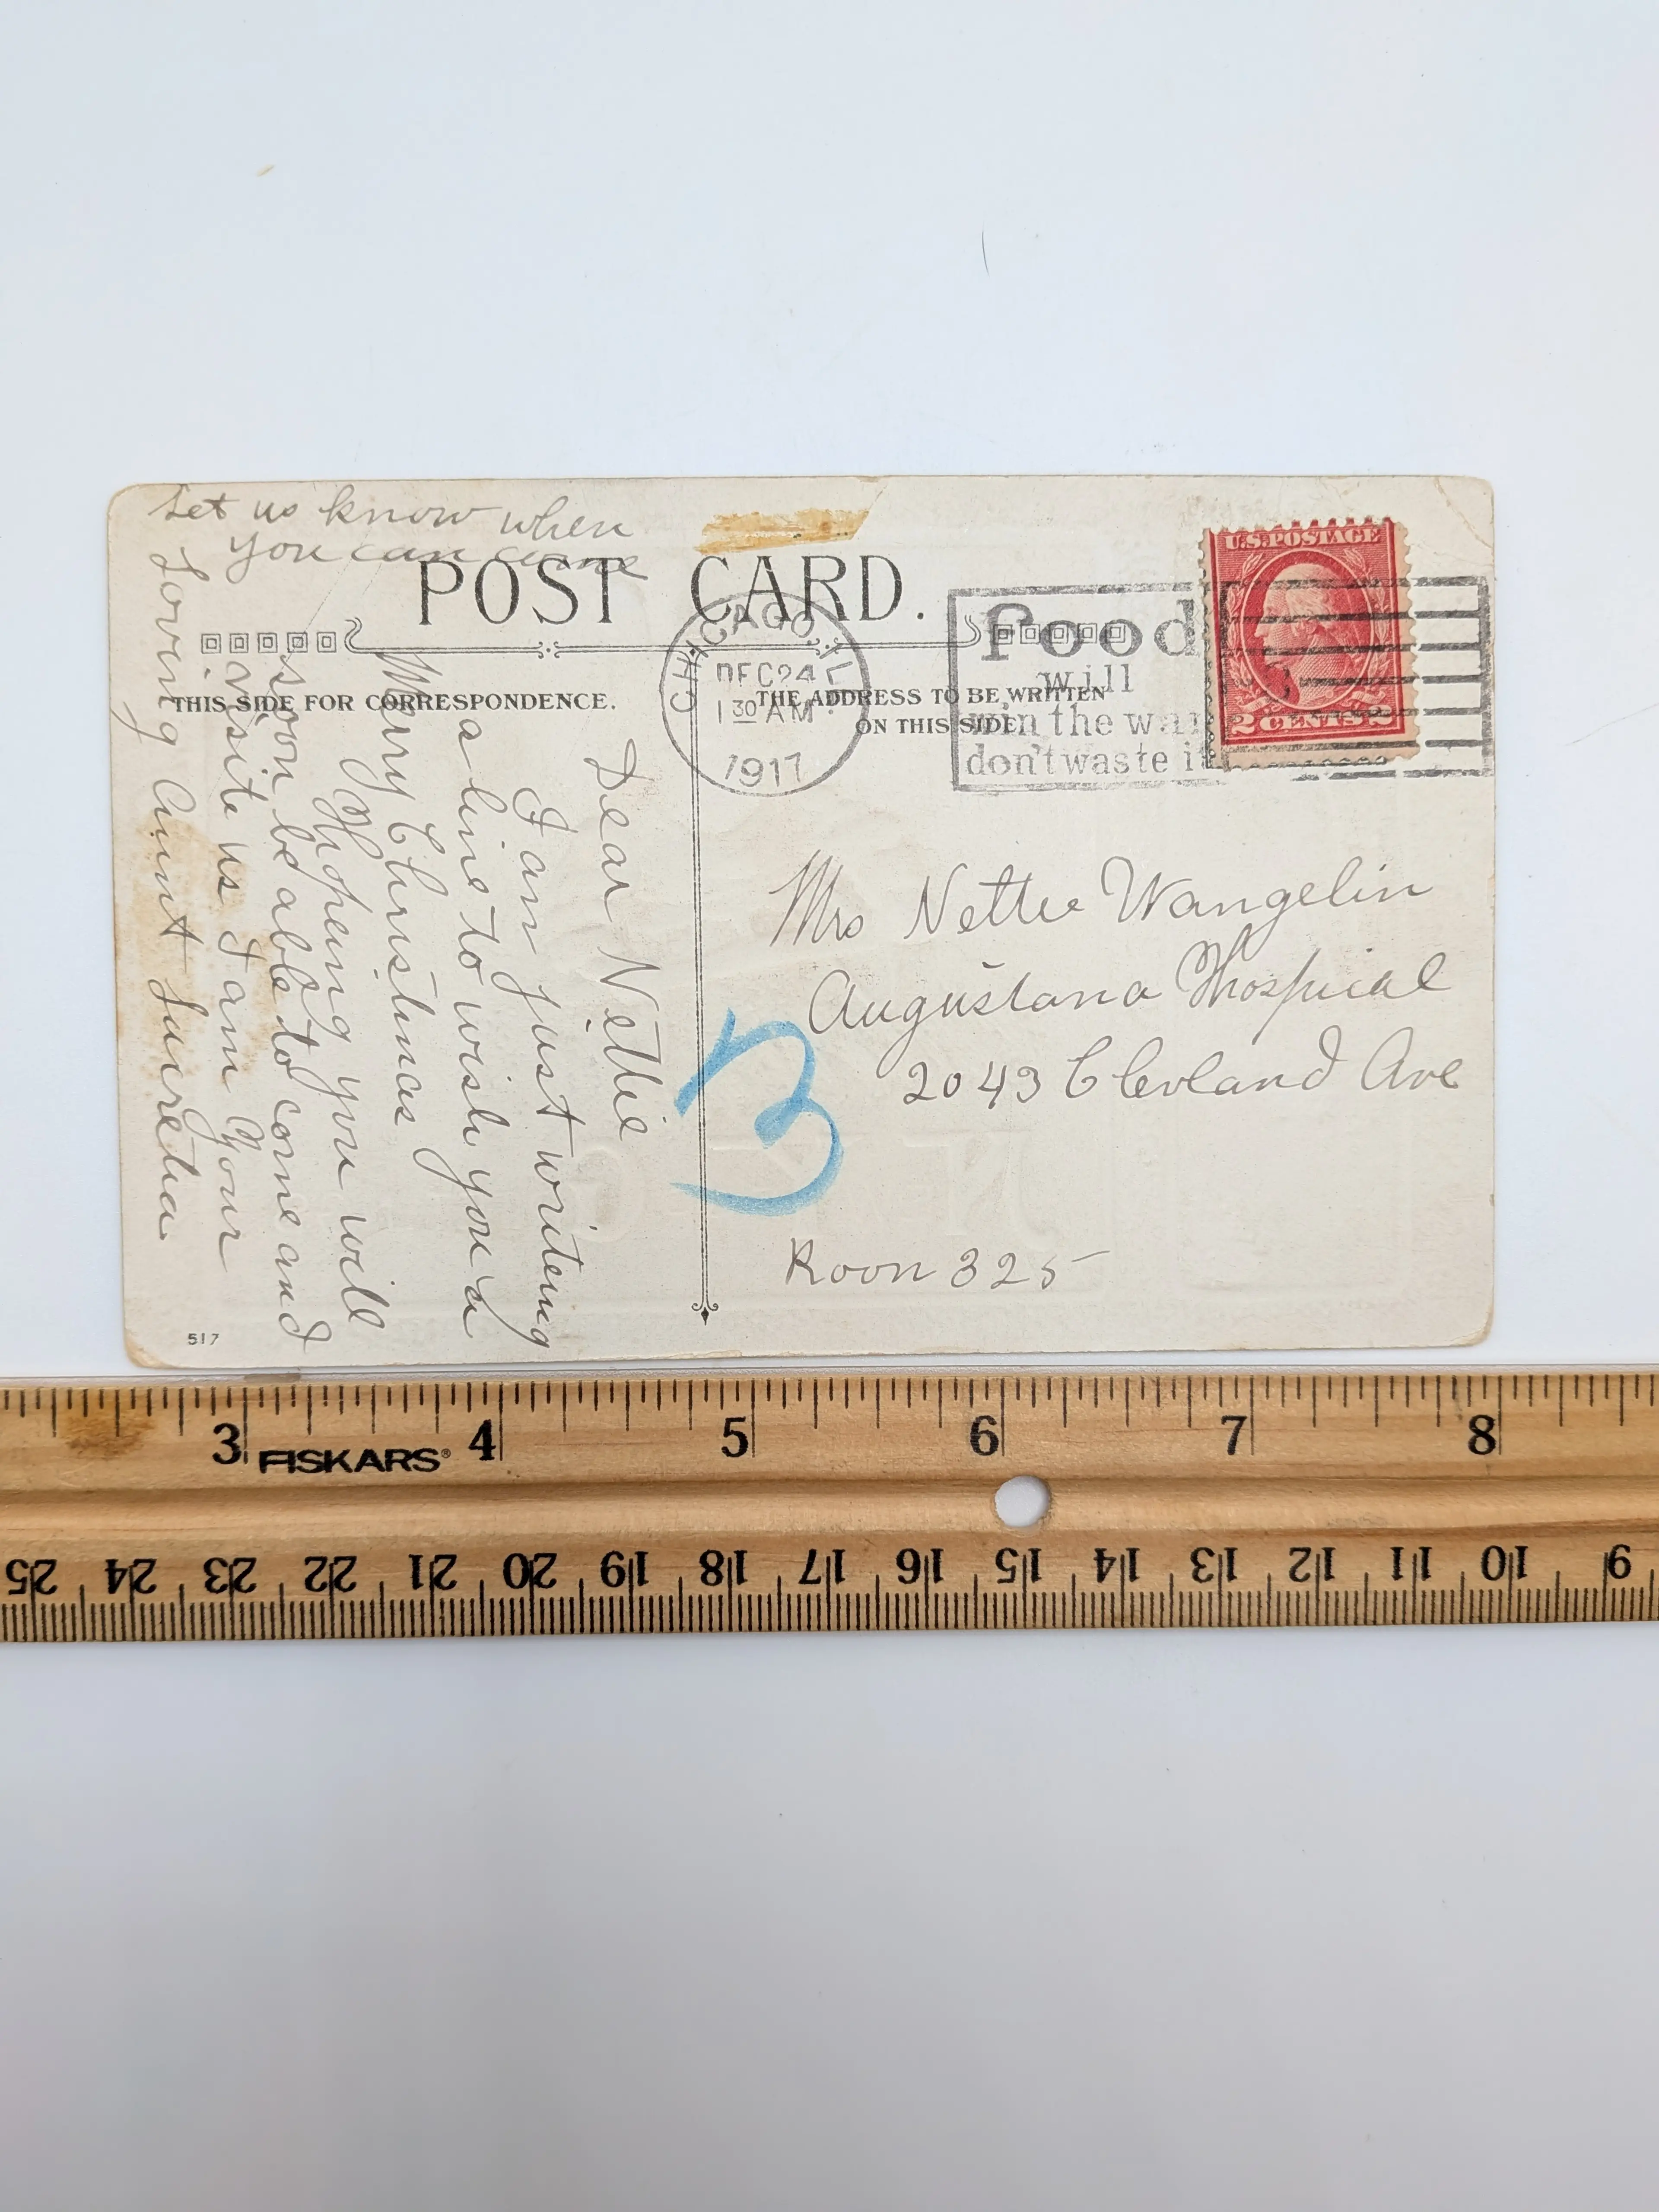 Let us know when
you can come
POST CARD.
THIS SIDE FOR CORRESPONDENCE.
THE ADDRESS TO BE WRITTEN
ON THIS SIDE
CHICAGO, ILL.
DEC 24
1 30 AM
1917
Food
will
win the war
don't waste it
U.S. POSTAGE
2 CENTS 2
Dear Nettie
I am just writeing
a line to wish you a
Merry Christmas
Hopeing you will
soon be able to come and
visite us I am Your
Loving Aunt Luretia
Mrs Nettie Wangelin
Augustana Hospical
2043 Clevland Ave
3
Room 325
517
3 4 5 6 7 8
FISKARS®
25 24 23 22 21 20 19 18 17 16 15 14 13 12 11 10 9